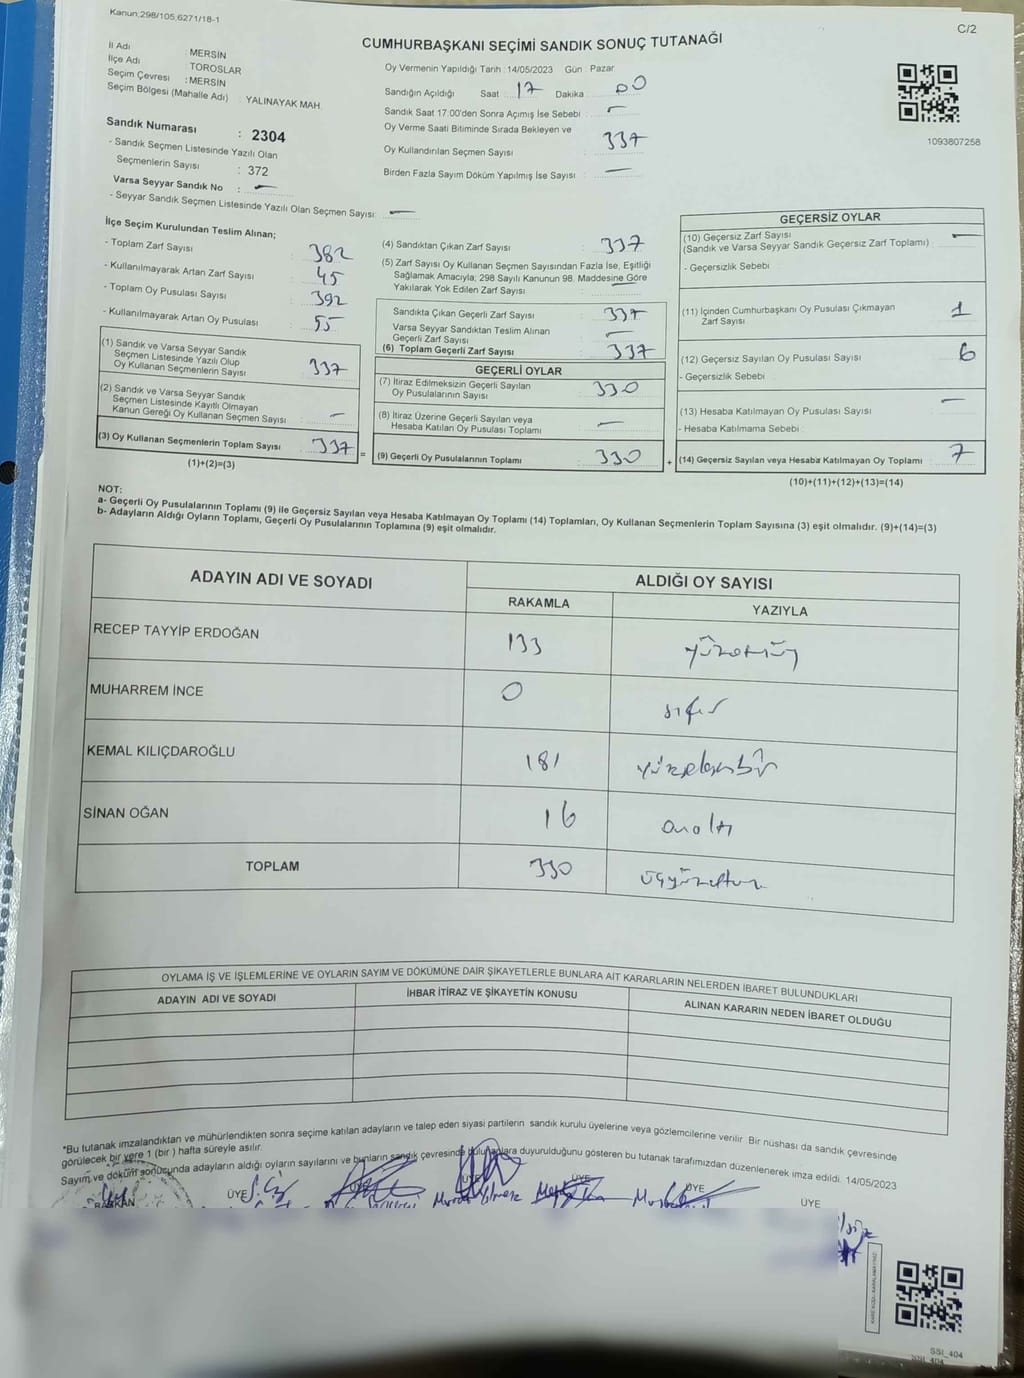 Kanun;298/105,6271/18-1
C/2
CUMHURBAŞKANI SEÇİMİ SANDIK SONUÇ TUTANAĞI
İl Adı MERSİN
İlçe Adı TOROSLAR
Seçim Çevresi : MERSİN
Seçim Bölgesi (Mahalle Adı) : YALINAYAK MAH.
Sandık Numarası : 2304
- Sandık Seçmen Listesinde Yazılı Olan
Seçmenlerin Sayısı : 372
Varsa Seyyar Sandık No : —
- Seyyar Sandık Seçmen Listesinde Yazılı Olan Seçmen Sayısı: —
Oy Vermenin Yapıldığı Tarih : 14/05/2023 Gün : Pazar
Sandığın Açıldığı Saat 17 Dakika 00
Sandık Saat 17:00'den Sonra Açımış İse Sebebi : —
Oy Verme Saati Bitiminde Sırada Bekleyen ve
Oy Kullandırılan Seçmen Sayısı : 337
Birden Fazla Sayım Döküm Yapılmış İse Sayısı : —
1093807258
İlçe Seçim Kurulundan Teslim Alınan;
- Toplam Zarf Sayısı : 382
- Kullanılmayarak Artan Zarf Sayısı : 45
- Toplam Oy Pusulası Sayısı : 392
- Kullanılmayarak Artan Oy Pusulası : 55
(1) Sandık ve Varsa Seyyar Sandık
Seçmen Listesinde Yazılı Olup
Oy Kullanan Seçmenlerin Sayısı : 337
(2) Sandık ve Varsa Seyyar Sandık
Seçmen Listesinde Kayıtlı Olmayan
Kanun Gereği Oy Kullanan Seçmen Sayısı : —
(3) Oy Kullanan Seçmenlerin Toplam Sayısı : 337
(1)+(2)=(3)
(4) Sandıktan Çıkan Zarf Sayısı : 337
(5) Zarf Sayısı Oy Kullanan Seçmen Sayısından Fazla İse, Eşitliği
Sağlamak Amacıyla; 298 Sayılı Kanunun 98. Maddesine Göre
Yakılarak Yok Edilen Zarf Sayısı : —
Sandıkta Çıkan Geçerli Zarf Sayısı : 337
Varsa Seyyar Sandıktan Teslim Alınan
Geçerli Zarf Sayısı : —
(6) Toplam Geçerli Zarf Sayısı : 337
GEÇERLİ OYLAR
(7) İtiraz Edilmeksizin Geçerli Sayılan
Oy Pusulalarının Sayısı : 330
(8) İtiraz Üzerine Geçerli Sayılan veya
Hesaba Katılan Oy Pusulası Toplamı : —
= (9) Geçerli Oy Pusulalarının Toplamı : 330
GEÇERSİZ OYLAR
(10) Geçersiz Zarf Sayısı —
(Sandık ve Varsa Seyyar Sandık Geçersiz Zarf Toplamı) :
- Geçersizlik Sebebi :
(11) İçinden Cumhurbaşkanı Oy Pusulası Çıkmayan
Zarf Sayısı : 1
(12) Geçersiz Sayılan Oy Pusulası Sayısı : 6
- Geçersizlik Sebebi :
(13) Hesaba Katılmayan Oy Pusulası Sayısı : —
- Hesaba Katılmama Sebebi :
+ (14) Geçersiz Sayılan veya Hesaba Katılmayan Oy Toplamı : 7
(10)+(11)+(12)+(13)=(14)
NOT:
a- Geçerli Oy Pusulalarının Toplamı (9) ile Geçersiz Sayılan veya Hesaba Katılmayan Oy Toplamı (14) Toplamları, Oy Kullanan Seçmenlerin Toplam Sayısına (3) eşit olmalıdır. (9)+(14)=(3)
b- Adayların Aldığı Oyların Toplamı, Geçerli Oy Pusulalarının Toplamına (9) eşit olmalıdır.
ADAYIN ADI VE SOYADI ALDIĞI OY SAYISI
RAKAMLA YAZIYLA
RECEP TAYYİP ERDOĞAN 133
MUHARREM İNCE 0 sıfır
KEMAL KILIÇDAROĞLU 181 yüzseksenbir
SİNAN OĞAN 16 onaltı
TOPLAM 330 üçyüzotuz
OYLAMA İŞ VE İŞLEMLERİNE VE OYLARIN SAYIM VE DÖKÜMÜNE DAİR ŞİKAYETLERLE BUNLARA AİT KARARLARIN NELERDEN İBARET BULUNDUKLARI
ADAYIN ADI VE SOYADI İHBAR İTİRAZ VE ŞİKAYETİN KONUSU ALINAN KARARIN NEDEN İBARET OLDUĞU
*Bu tutanak imzalandıktan ve mühürlendikten sonra seçime katılan adayların ve talep eden siyasi partilerin sandık kurulu üyelerine veya gözlemcilerine verilir. Bir nüshası da sandık çevresinde
görülecek bir yere 1 (bir) hafta süreyle asılır.
Sayım ve döküm sonucunda adayların aldığı oyların sayılarını ve bunların sandık çevresinde bulunanlara duyurulduğunu gösteren bu tutanak tarafımızdan düzenlenerek imza edildi. 14/05/2023
BAŞKAN ÜYE ÜYE ÜYE ÜYE ÜYE ÜYE
Murat Yılmaz
SSI_404
SSI_404